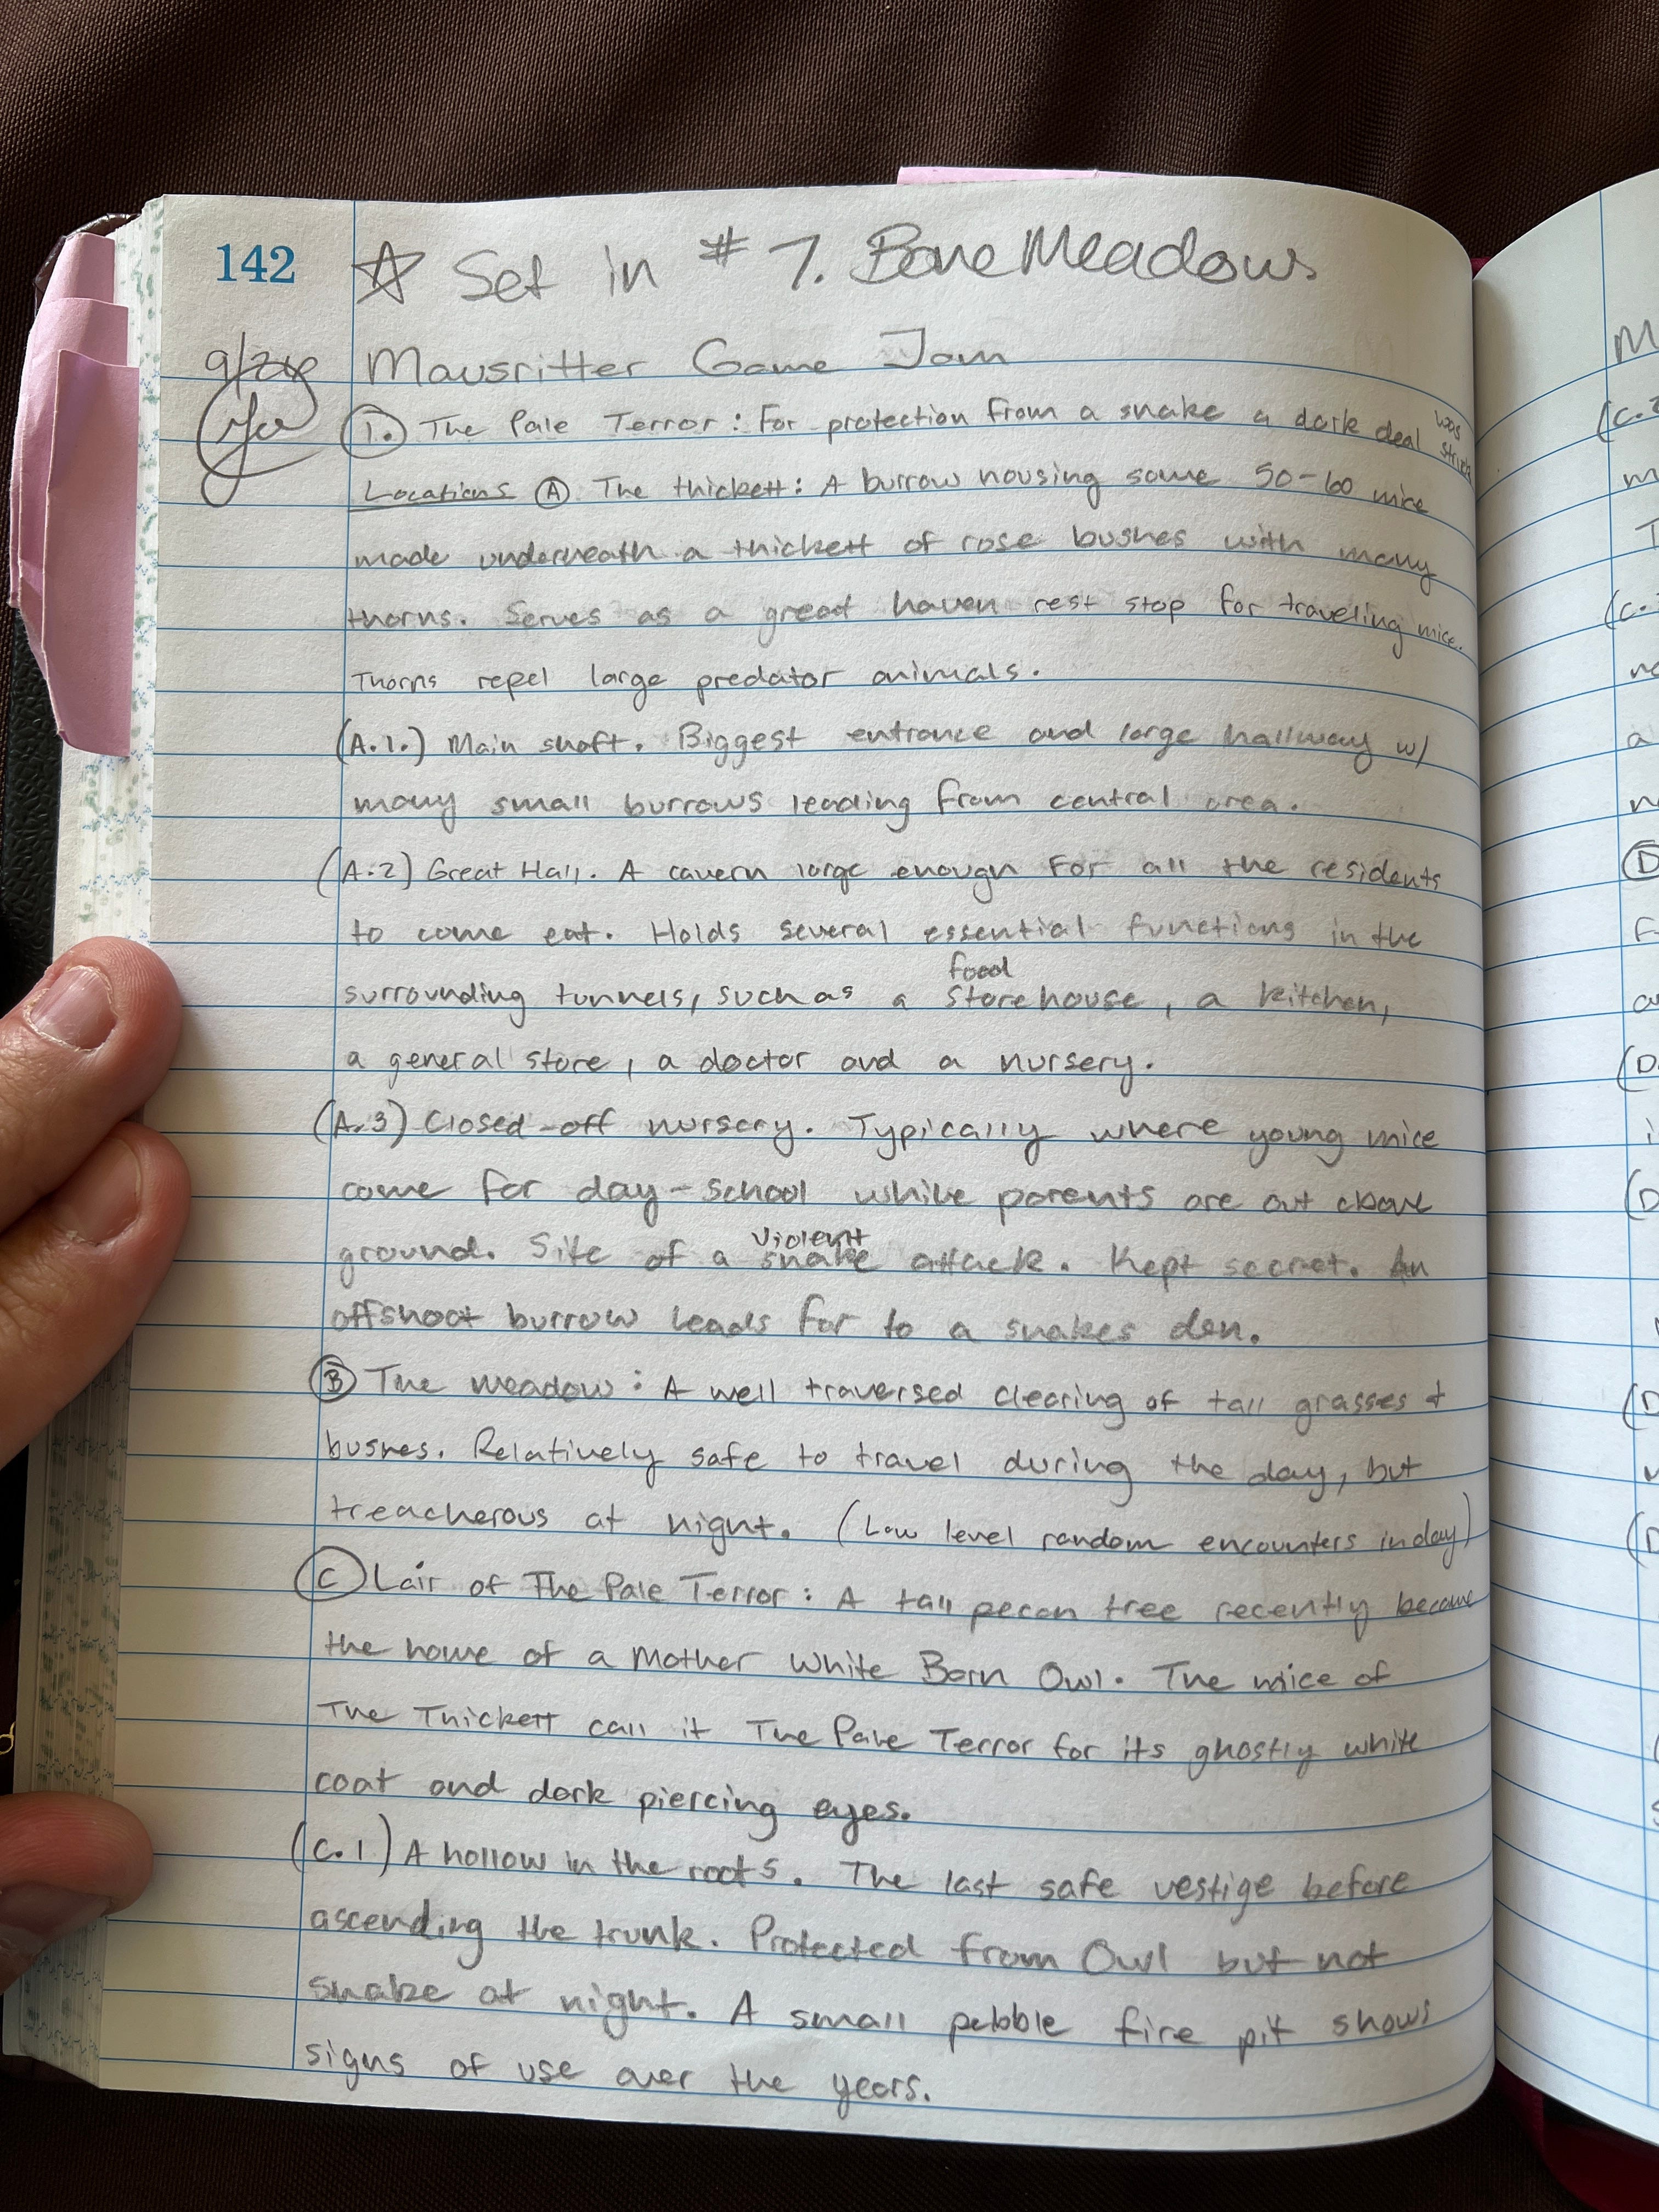 142
☆ Set in #7. Bone Meadows
Mausritter Game Jam
1. The Pale Terror: For protection from a snake a dark deal was struck
Locations A The thickett: A burrow housing some 50-60 mice
made underneath a thickett of rose bushes with many
thorns. Serves as a great haven rest stop for traveling mice.
Thorns repel large predator animals.
(A.1.) Main shaft. Biggest entrance and large hallway w/
many small burrows leading from central area.
(A.2) Great Hall. A cavern large enough for all the residents
to come eat. Holds several essential functions in the
surrounding tunnels, such as a food storehouse, a kitchen,
a general store, a doctor and a nursery.
(A.3) Closed-off nursery. Typically where young mice
come for day-school while parents are out above
ground. Site of a violent snake attack. Kept secret. An
offshoot burrow leads far to a snakes den.
B The meadow: A well traversed clearing of tall grasses &
bushes. Relatively safe to travel during the day, but
treacherous at night. (Low level random encounters in day)
C Lair of The Pale Terror: A tall pecan tree recently became
the home of a Mother White Barn Owl. The mice of
The Thickett call it The Pale Terror for its ghostly white
coat and dark piercing eyes.
(C.1) A hollow in the roots. The last safe vestige before
ascending the trunk. Protected from Owl but not
snake at night. A small pebble fire pit shows
signs of use over the years.